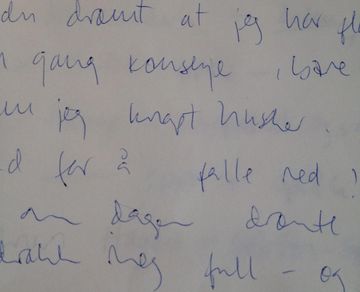 du drømt at jeg har
gang kanskje, bare
jeg knapt husker.
d for å falle ned!
om dagen drømte
meg full - og